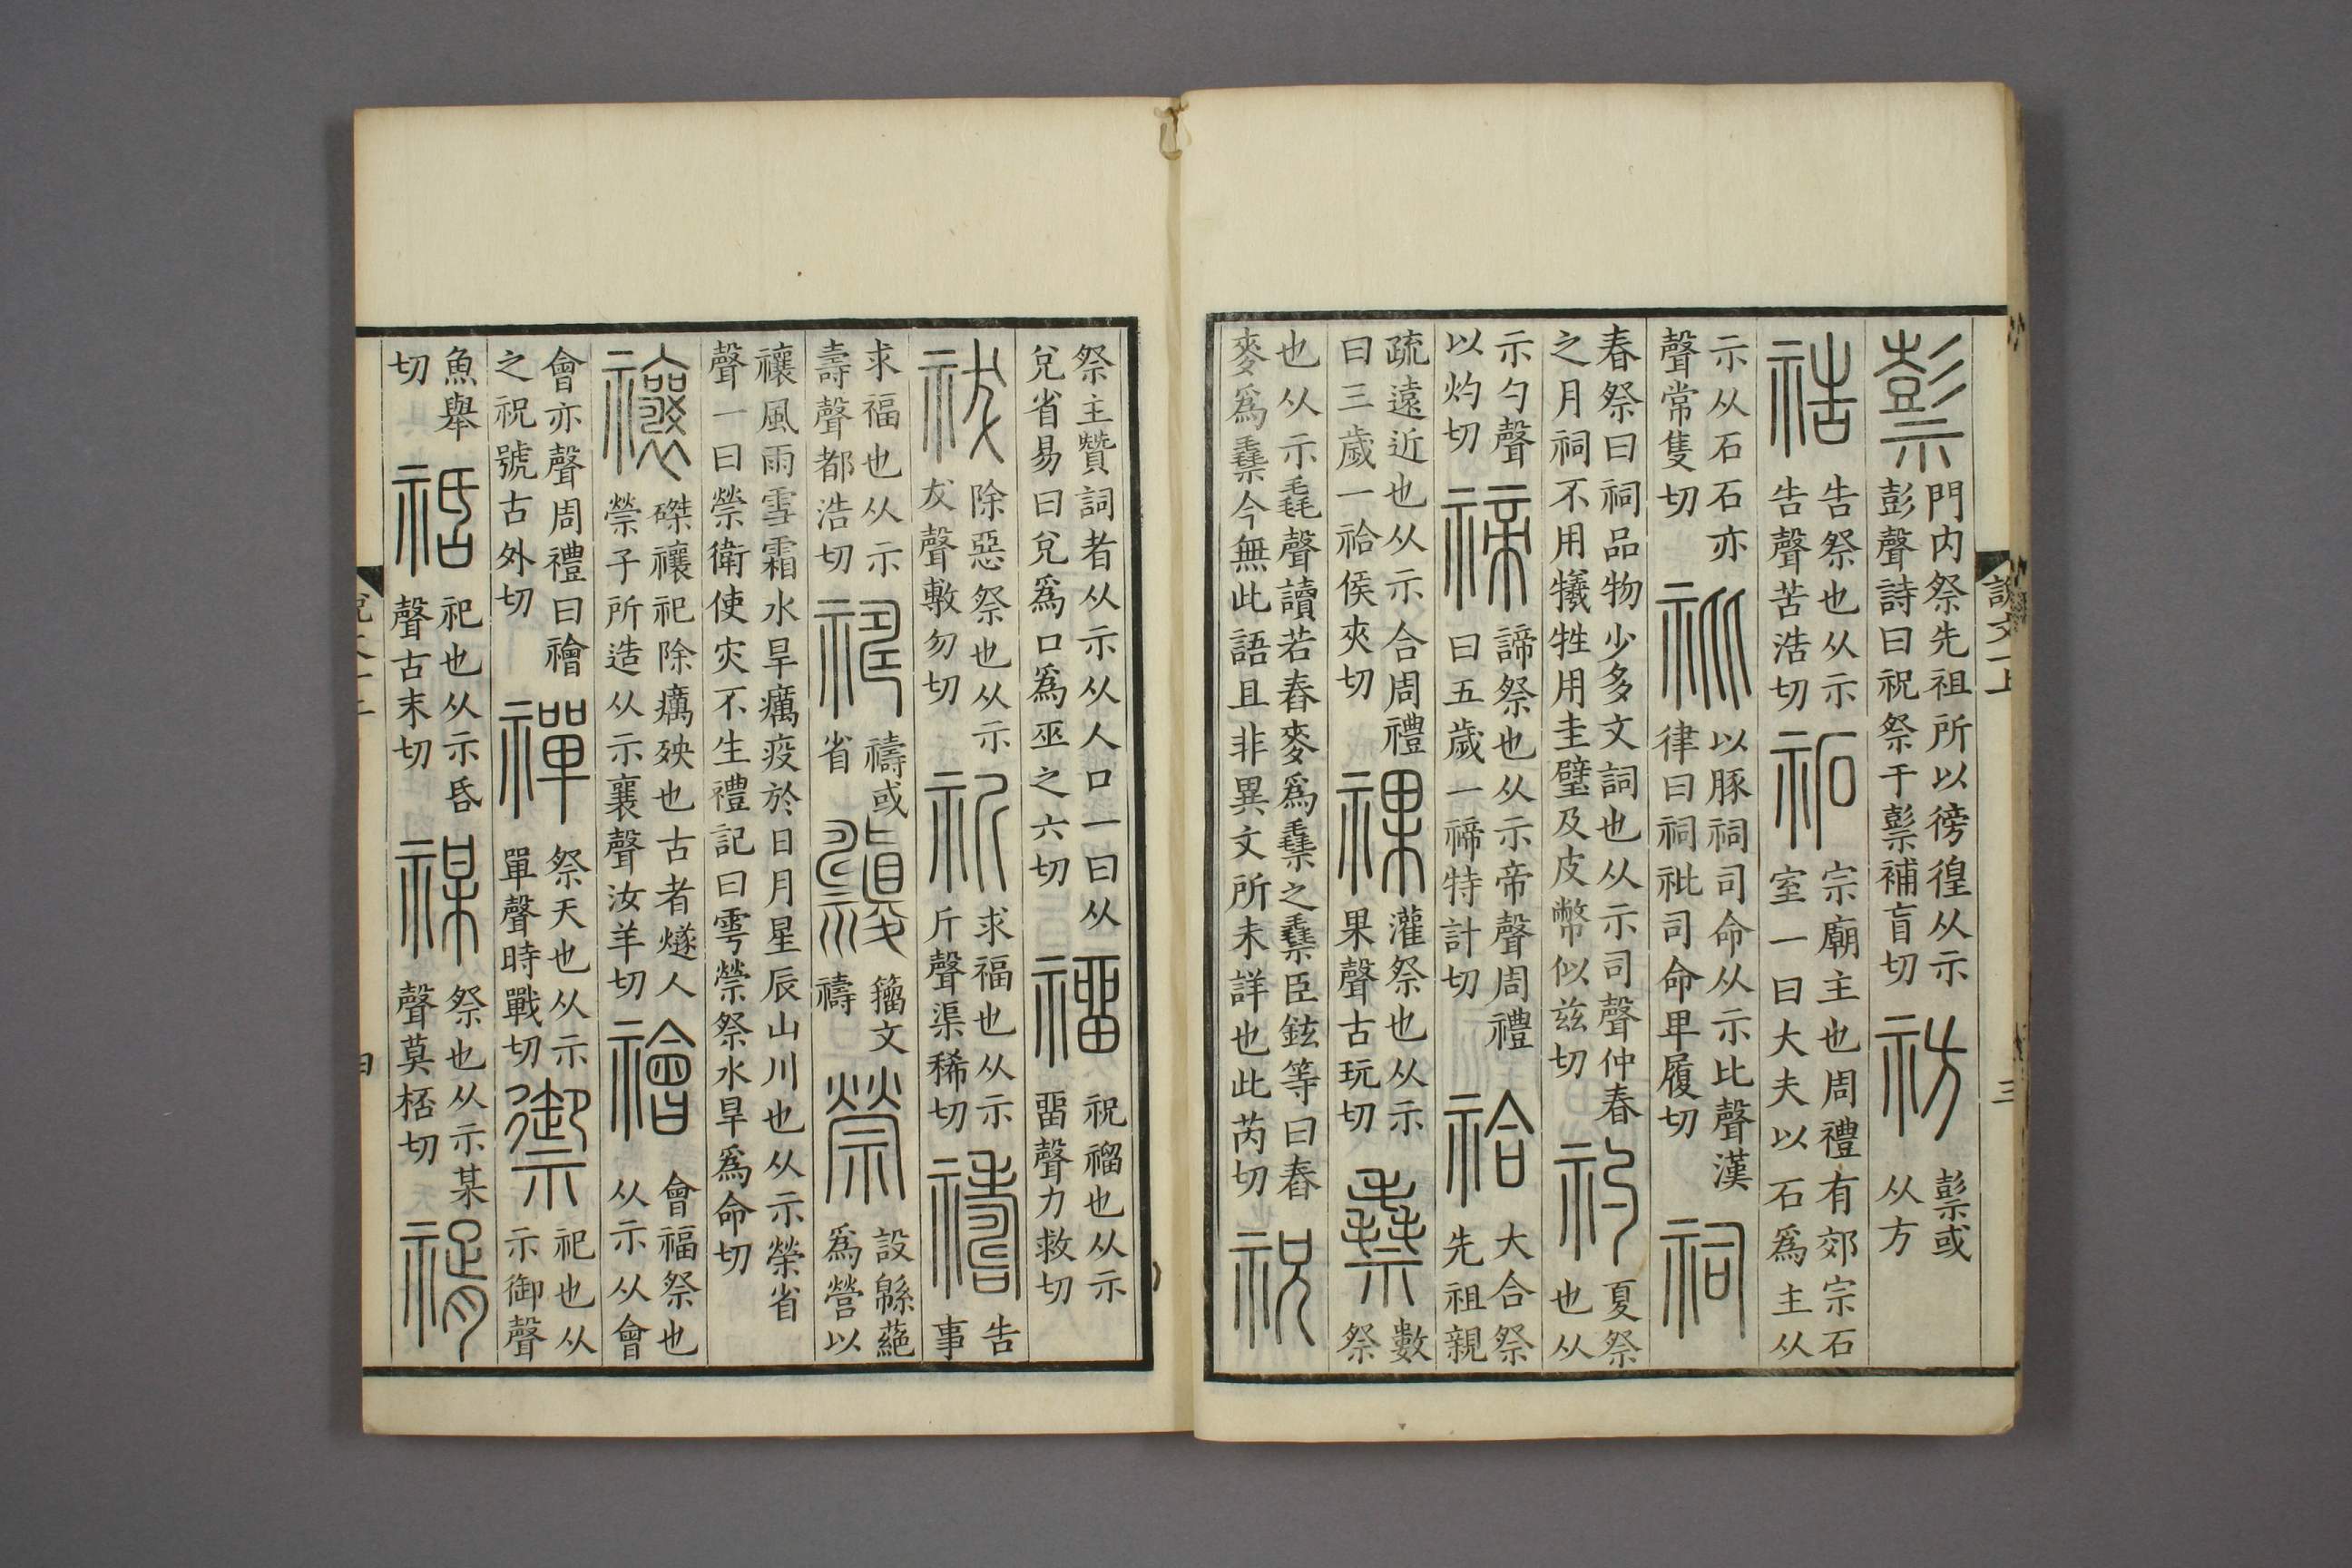 𥛱門内祭先祖所以徬徨从示彭聲詩曰祝祭于𥛱補盲切祊𥛱或从方
祰告祭也从示告聲苦浩切祏宗廟主也周禮有郊宗石室一曰大夫以石爲主从
示从石石亦聲常隻切䃾以豚祠司命从示比聲漢律曰祠䃾司命卑履切祠
春祭曰祠品物少多文詞也从示司聲仲春之月祠不用犧牲用圭璧及皮幣似兹切礿夏祭也从
示勺聲以灼切禘諦祭也从示帝聲周禮曰五歲一禘特計切祫大合祭先祖親
疏遠近也从示合周禮曰三歲一祫侯夾切祼灌祭也从示果聲古玩切䄟數祭
也从示毳聲讀若舂麥爲䄟之䄟臣鉉等曰舂麥爲䄟今無此語且非異文所未詳也此芮切祝
說文一上 三
祭主贊詞者从示从人口一曰从兌省易曰兌爲口爲巫之六切𥛅祝𥛅也从示畱聲力救切
祓除惡祭也从示犮聲敷勿切祈求福也从示斤聲渠稀切禱告事
求福也从示壽聲都浩切禱或省籒文禱禜設緜蕝爲營以
禳風雨雪霜水旱癘疫於日月星辰山川也从示榮省聲一曰禜衛使灾不生禮記曰雩禜祭水旱爲命切
禳磔禳祀除癘殃也古者燧人禜子所造从示襄聲汝羊切禬會福祭也从示从會
會亦聲周禮曰禬之祝號古外切禪祭天也从示單聲時戰切禦祀也从示御聲
魚舉切祀也从示昏聲古末切禖祭也从示某聲莫桮切䄌